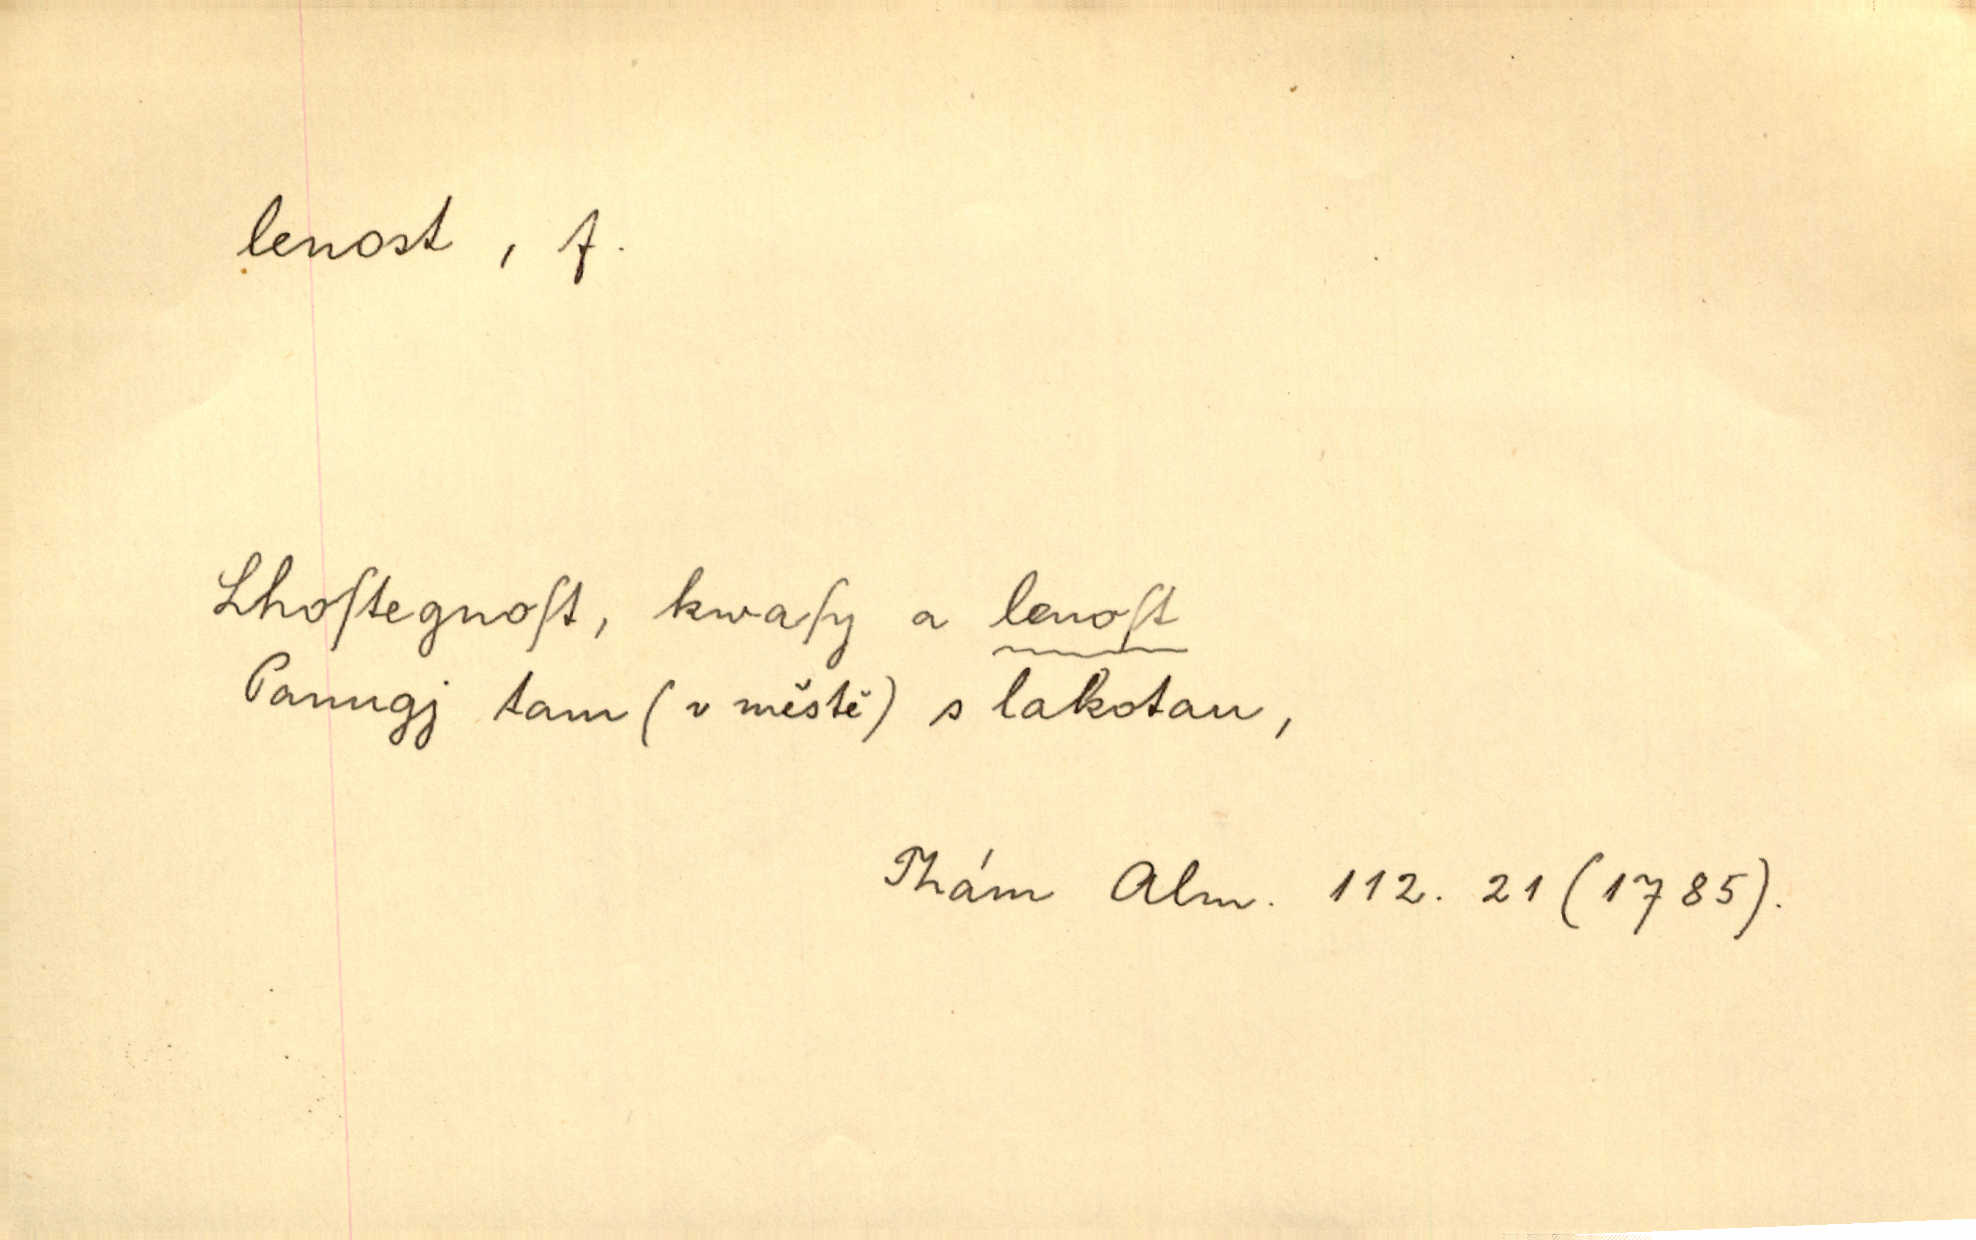 lenost, f.
Lhoſtegnoſt, kwaſy a lenoſt
Panugj tam (v městě) s lakotau,
Thám Alm. 112. 21 (1785).